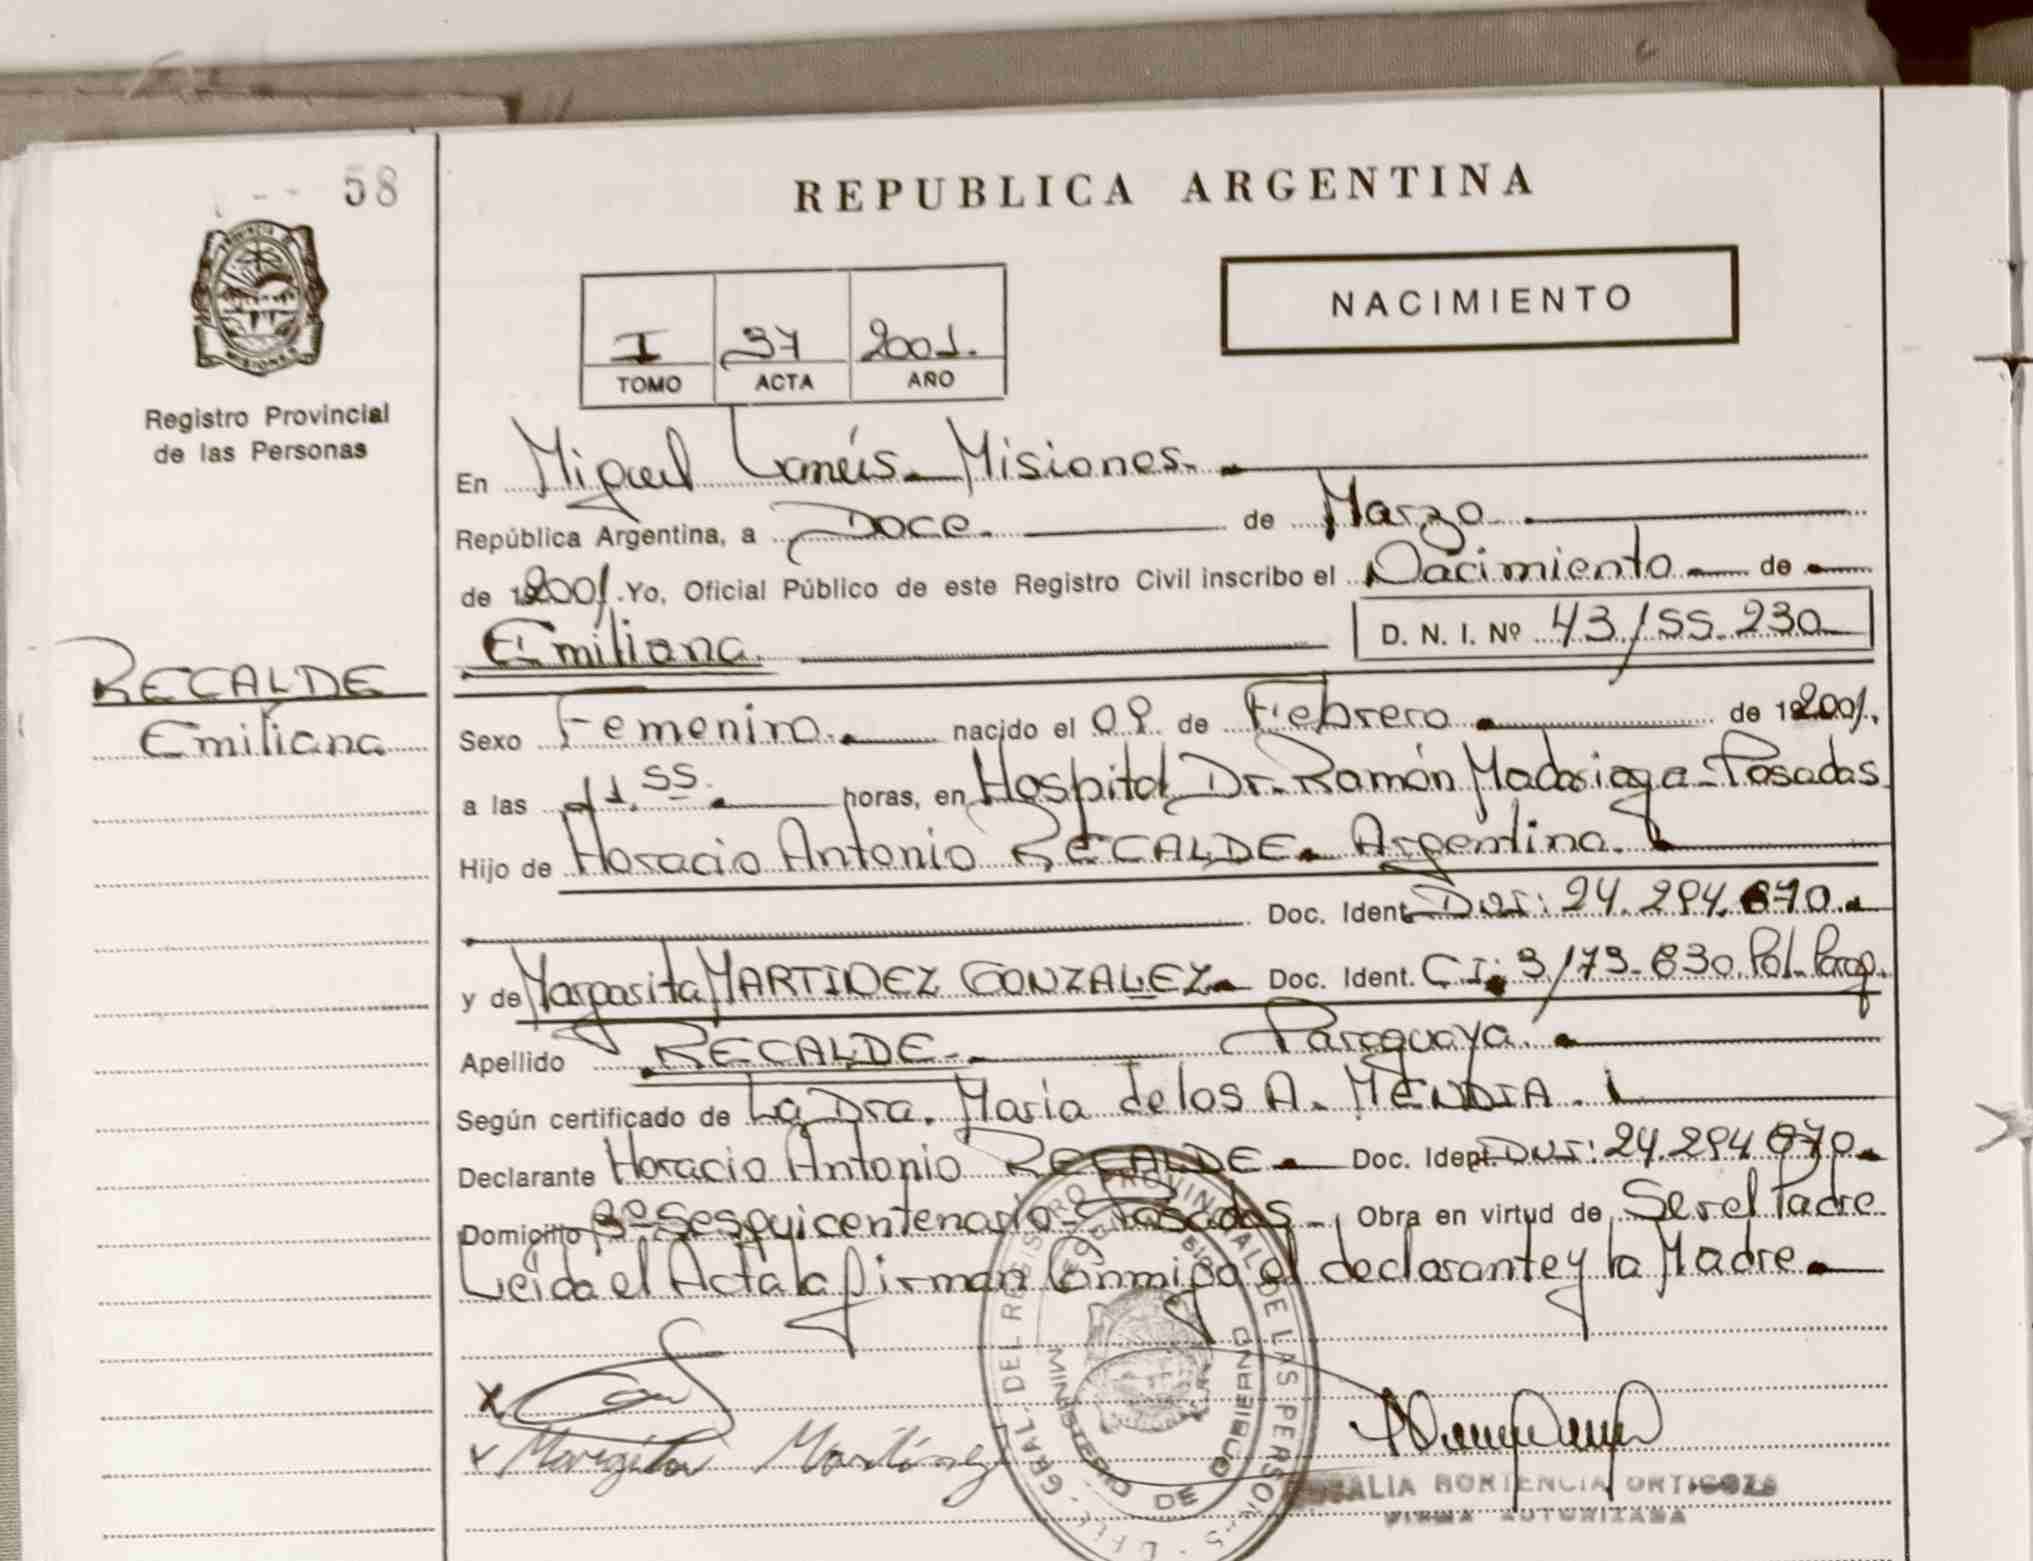 58
REPUBLICA ARGENTINA
NACIMIENTO
I 37 2001.
TOMO ACTA AÑO
Registro Provincial
de las Personas
En Miguel Lanús - Misiones.
República Argentina, a Doce. de Marzo
de 2001. Yo, Oficial Público de este Registro Civil inscribo el Nacimiento de
Emiliana D. N. I. Nº 43/55.230
RECALDE
Emiliana
Sexo Femenino. nacido el 09 de Febrero de 2001.
a las 11.55. horas, en Hospital Dr. Ramón Madariaga - Posadas
Hijo de Horacio Antonio RECALDE. Argentino.
Doc. Ident. DNI: 24.294.670.
y de Margarita MARTINEZ GONZALEZ. Doc. Ident. C.I: 3/73.630 Pol. Parag.
Apellido RECALDE. Paraguaya.
Según certificado de La Dra. Maria de los A. MENDIA.
Declarante Horacio Antonio RECALDE. Doc. Ident. DNI: 24.294.670.
Domicilio Bº Sesquicentenario - Posadas - Obra en virtud de Ser el Padre
Leida el Acta la firman Conmigo el declarante y la Madre.
x
x Margarita Martínez
GRAL. DEL REGISTRO PROVINCIAL DE LAS PERSONAS
MINISTERIO DE GOBIERNO
HORTENCIA ORTIGOZA
FIRMA AUTORIZADA
PROVINCIA DE
MISIONES